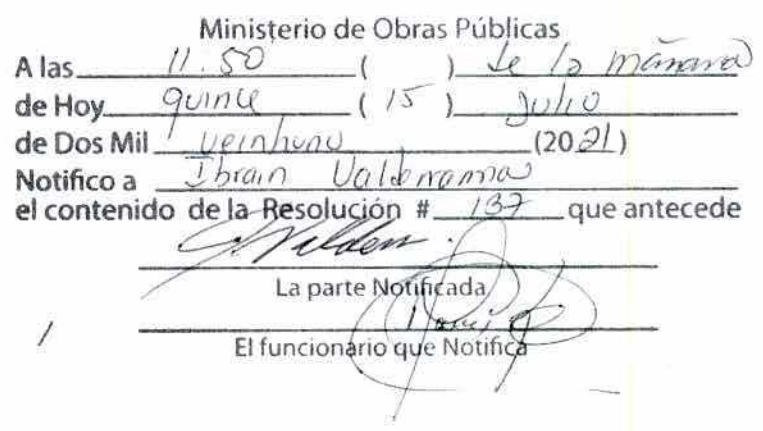 Ministerio de Obras Públicas
A las 11.50 ( ) de la mañana
de Hoy quince ( 15 ) Julio
de Dos Mil veintiuno (2021)
Notifico a Ibrain Valderrama
el contenido de la Resolución # 137 que antecede
La parte Notificada
El funcionario que Notifica